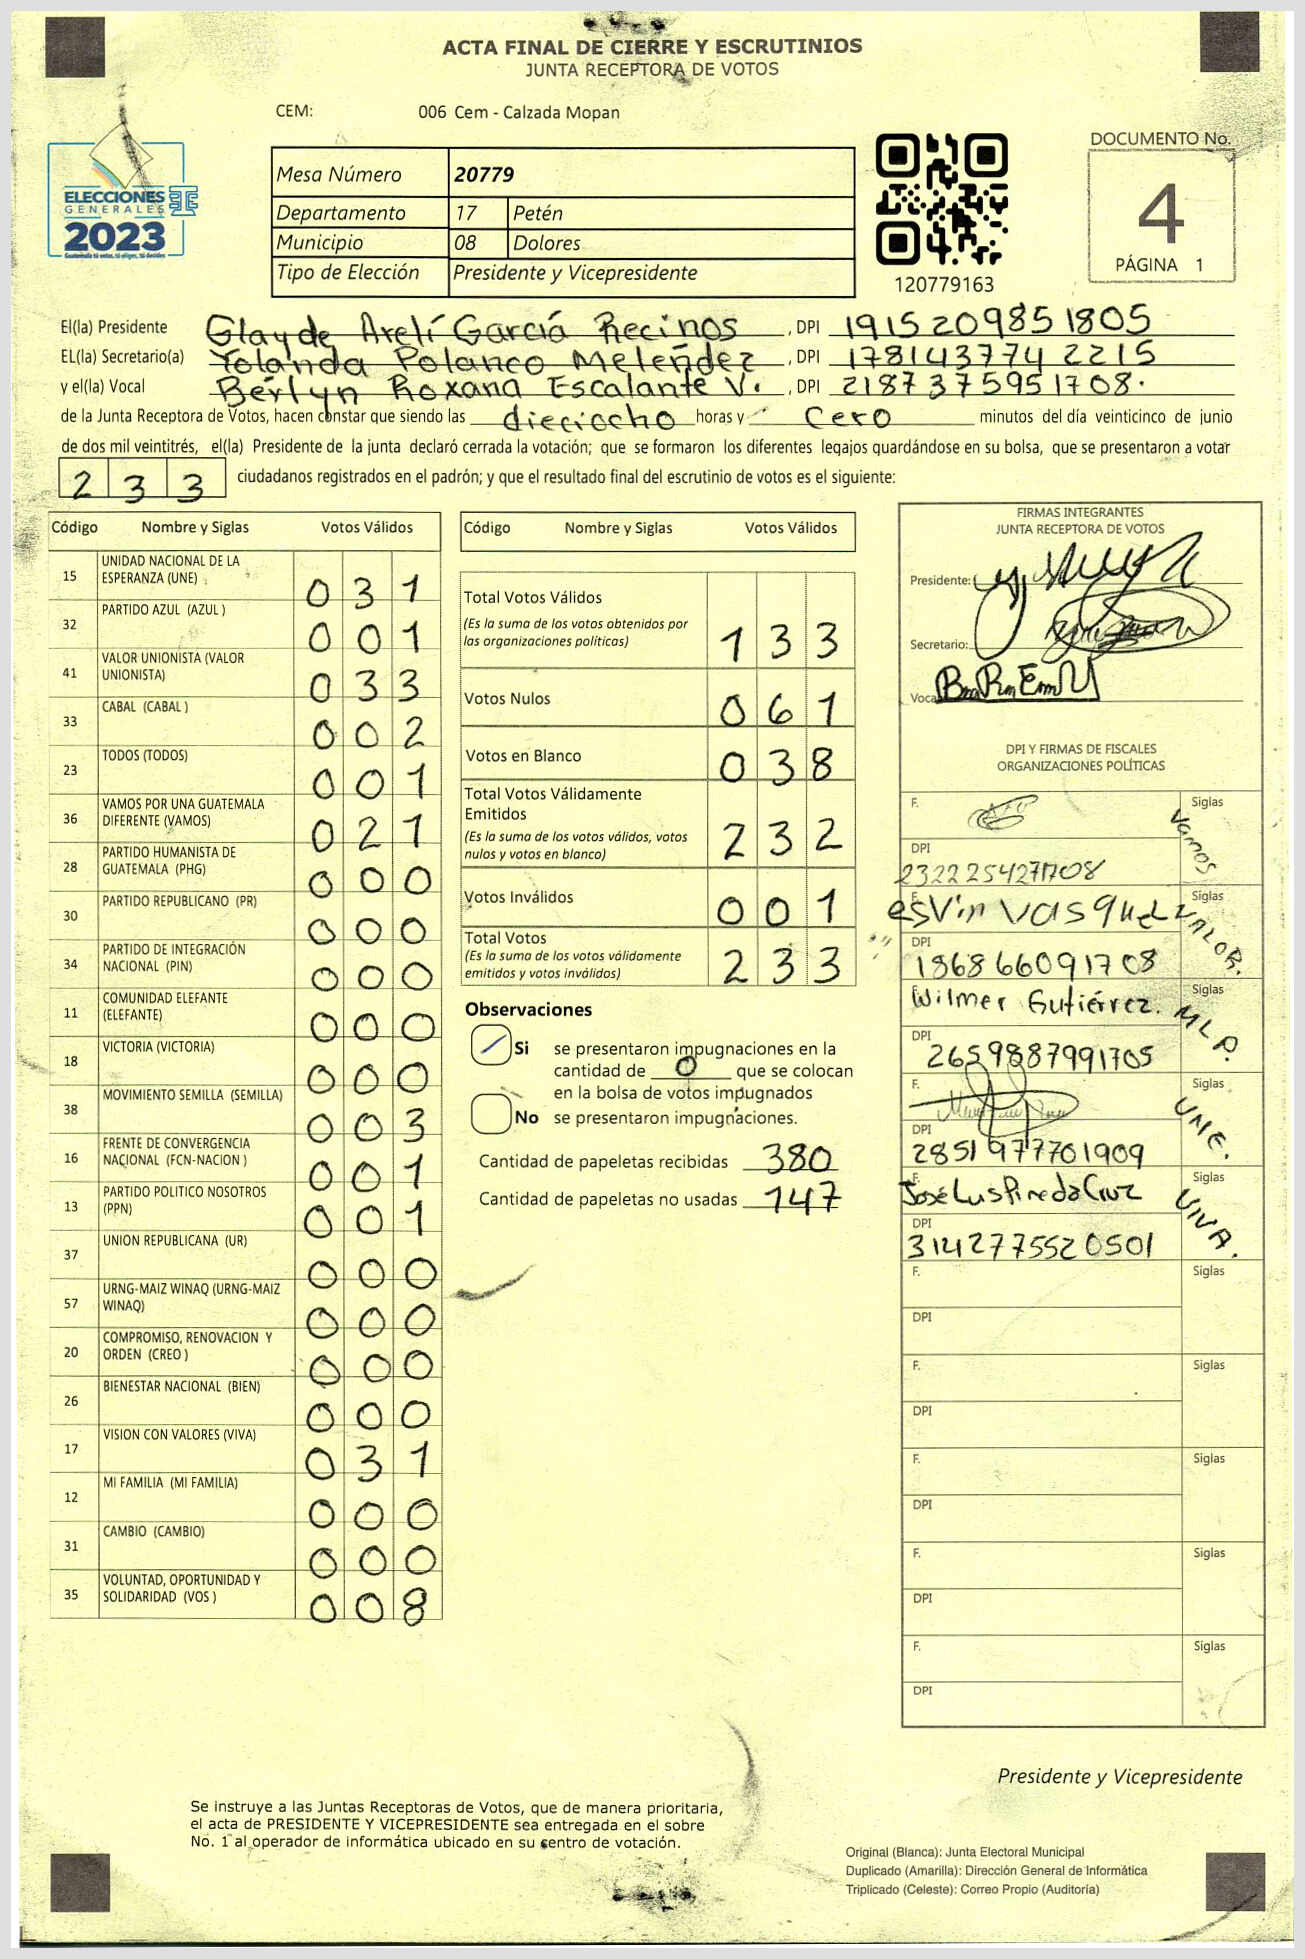 ACTA FINAL DE CIERRE Y ESCRUTINIOS
JUNTA RECEPTORA DE VOTOS
CEM: 006 Cem - Calzada Mopan
ELECCIONES
GENERALES
2023
Mesa Número 20779
Departamento 17 Petén
Municipio 08 Dolores
Tipo de Elección Presidente y Vicepresidente
120779163
DOCUMENTO No.
4
PÁGINA 1
El(la) Presidente Glayde Arelí García Recinos, DPI 1915209851805
EL(la) Secretario(a) Yolanda Polanco Meléndez, DPI 1781437742215
y el(la) Vocal Berlyn Roxana Escalante V., DPI 2187375951708.
de la Junta Receptora de Votos, hacen constar que siendo las dieciocho horas y cero minutos del día veinticinco de junio
de dos mil veintitrés, el(la) Presidente de la junta declaró cerrada la votación; que se formaron los diferentes legajos guardándose en su bolsa, que se presentaron a votar
233 ciudadanos registrados en el padrón; y que el resultado final del escrutinio de votos es el siguiente:
Código Nombre y Siglas Votos Válidos
15 UNIDAD NACIONAL DE LA ESPERANZA (UNE) 031
32 PARTIDO AZUL (AZUL ) 001
41 VALOR UNIONISTA (VALOR UNIONISTA) 033
33 CABAL (CABAL ) 002
23 TODOS (TODOS) 001
36 VAMOS POR UNA GUATEMALA DIFERENTE (VAMOS) 021
28 PARTIDO HUMANISTA DE GUATEMALA (PHG) 000
30 PARTIDO REPUBLICANO (PR) 000
34 PARTIDO DE INTEGRACIÓN NACIONAL (PIN) 000
11 COMUNIDAD ELEFANTE (ELEFANTE) 000
18 VICTORIA (VICTORIA) 000
38 MOVIMIENTO SEMILLA (SEMILLA) 003
16 FRENTE DE CONVERGENCIA NACIONAL (FCN-NACION ) 001
13 PARTIDO POLITICO NOSOTROS (PPN) 001
37 UNION REPUBLICANA (UR) 000
57 URNG-MAIZ WINAQ (URNG-MAIZ WINAQ) 000
20 COMPROMISO, RENOVACION Y ORDEN (CREO ) 000
26 BIENESTAR NACIONAL (BIEN) 000
17 VISION CON VALORES (VIVA) 031
12 MI FAMILIA (MI FAMILIA) 000
31 CAMBIO (CAMBIO) 000
35 VOLUNTAD, OPORTUNIDAD Y SOLIDARIDAD (VOS ) 008
Código Nombre y Siglas Votos Válidos
Total Votos Válidos
(Es la suma de los votos obtenidos por
las organizaciones políticas) 133
Votos Nulos 061
Votos en Blanco 038
Total Votos Válidamente
Emitidos
(Es la suma de los votos válidos, votos
nulos y votos en blanco) 232
Votos Inválidos 001
Total Votos
(Es la suma de los votos válidamente
emitidos y votos inválidos) 233
Observaciones
Si se presentaron impugnaciones en la
cantidad de 0 que se colocan
en la bolsa de votos impugnados
No se presentaron impugnaciones.
Cantidad de papeletas recibidas 380
Cantidad de papeletas no usadas 147
FIRMAS INTEGRANTES
JUNTA RECEPTORA DE VOTOS
Presidente:
Secretario:
Vocal
DPI Y FIRMAS DE FISCALES
ORGANIZACIONES POLÍTICAS
F. Siglas Vamos
DPI 2322254271708
F. esvin vasquez Siglas VALOR.
DPI 1868660911708
Wilmer Gutiérrez. Siglas MLP.
DPI 2659887991705
F. Siglas UNE.
DPI 2851977701909
F. José Luis Pineda Cruz Siglas VIVA.
DPI 3142775520501
F. Siglas
DPI
F. Siglas
DPI
F. Siglas
DPI
F. Siglas
DPI
F. Siglas
DPI
Presidente y Vicepresidente
Se instruye a las Juntas Receptoras de Votos, que de manera prioritaria,
el acta de PRESIDENTE Y VICEPRESIDENTE sea entregada en el sobre
No. 1 al operador de informática ubicado en su centro de votación.
Original (Blanca): Junta Electoral Municipal
Duplicado (Amarilla): Dirección General de Informática
Triplicado (Celeste): Correo Propio (Auditoría)